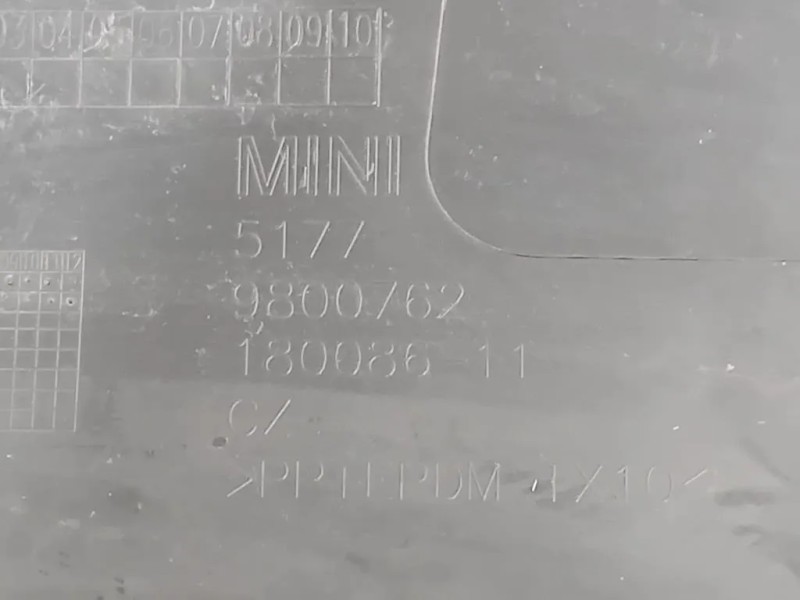 03 04 05 06 07 08 09 10
MINI
5177
9800762
180086-11
C/
>PP+EPDM-TX10<